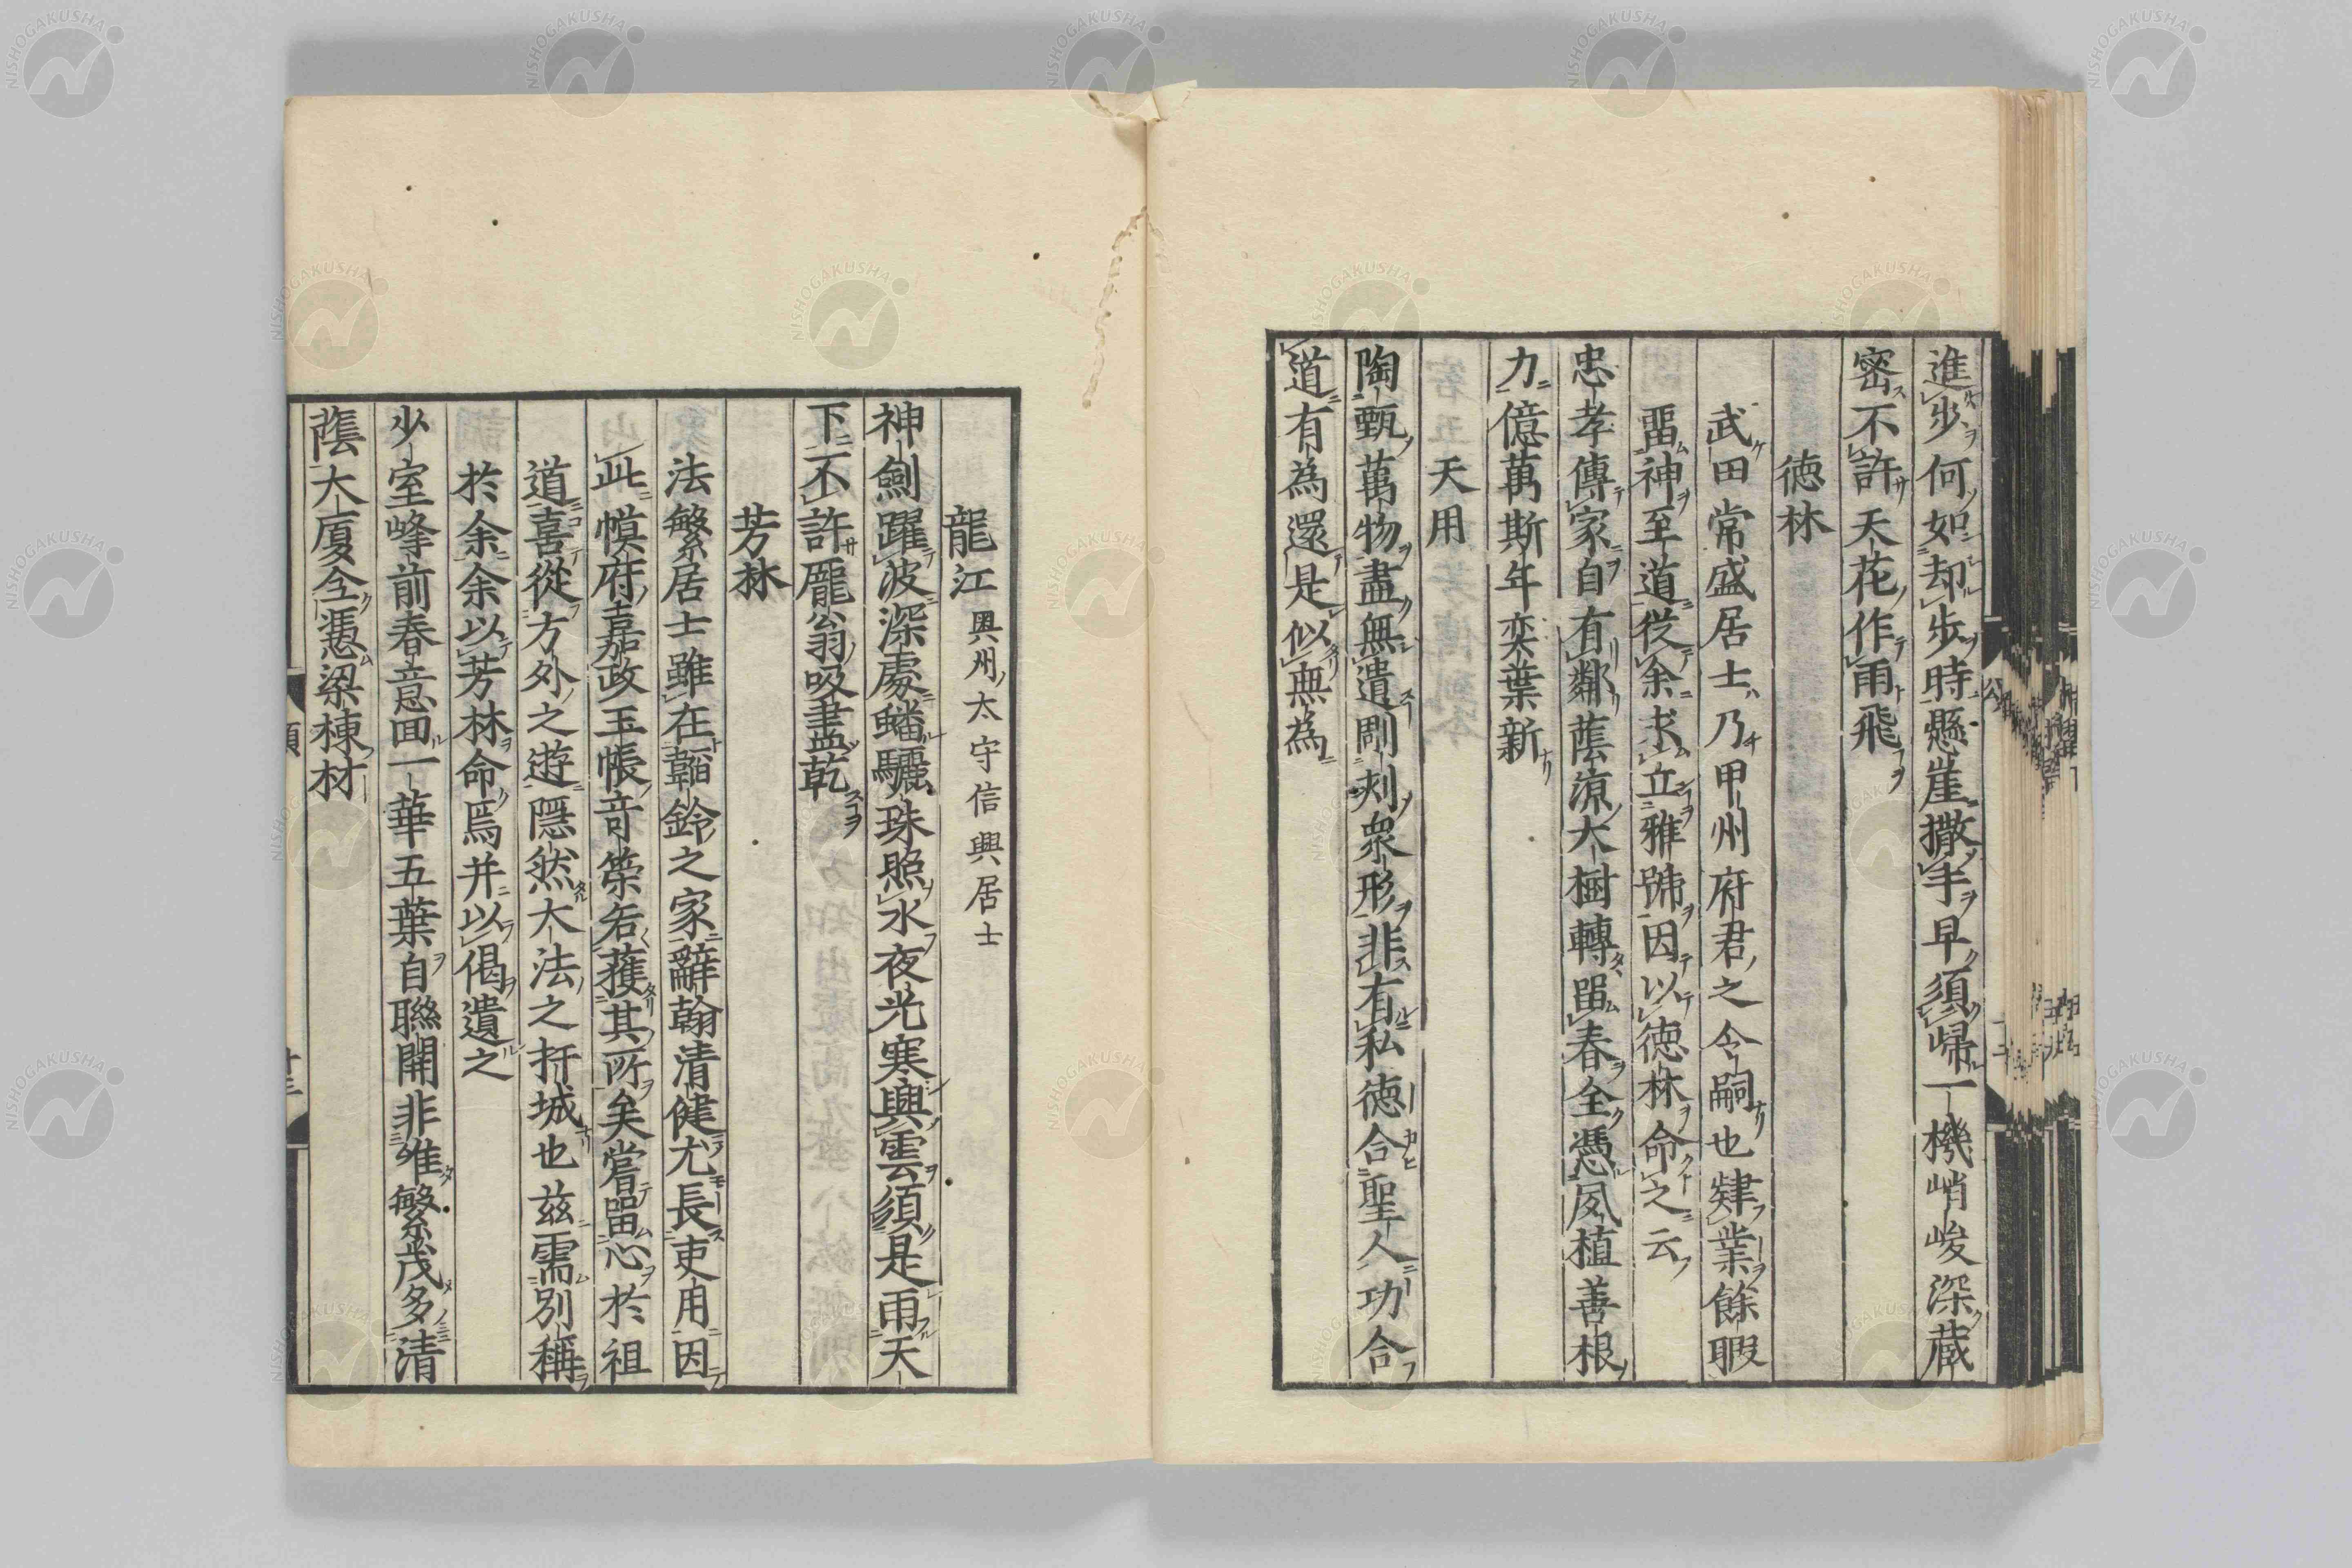 進歩何如却歩時懸崖撒手早須歸一機峭峻深藏
密不許天花作雨飛
徳林
武田常盛居士乃甲州府君之令嗣也肄業餘暇
畱神至道從余求立雅號因以徳林命之云
忠孝傳家自有鄰蔭凉大樹轉畱春全憑夙植善根
力億萬斯年奕葉新
天用
陶甄萬物盡無遺剛刺衆形非有私徳合聖人功合
道有為還是似無為
龍江 奥州太守信興居士
神劍躍波深處蟠驪珠照水夜光寒輿雲須是雨天
下不許龐翁吸盡乾
芳林
法繁居士雖在韜鈴之家辭翰清健尤長吏用因
此幙府嘉政玉帳竒策若蒦其所矣嘗畱心於祖
道喜從方外之遊隱然大法之扞城也兹需別稱
於余余以芳林命焉并以偈遺之
少室峰前春意回一華五葉自聯開非惟繁茂多清
蔭大厦全憑梁棟材
NISHOGAKUSHA